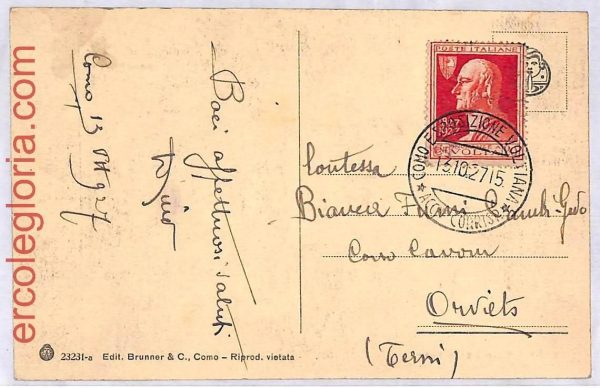 ercolegloria.com
Como 13 Ott 927
Baci affettuosi saluti
POSTE ITALIANE
VOLTA
COMO ESPOSIZIONE VOLTIANA
13.10.27 15
Contessa
Bianca
Corso Cavour
Orvieto
(Terni)
23231-a Edit. Brunner & C., Como - Riprod. vietata